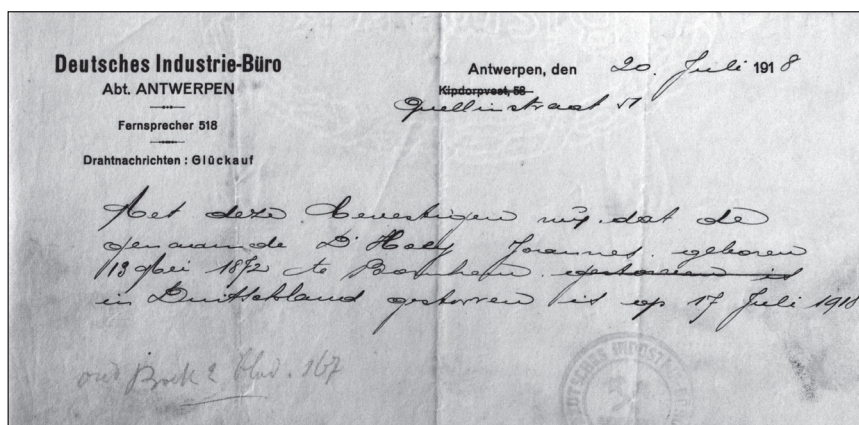 Deutsches Industrie-Büro
Abt. ANTWERPEN
Fernsprecher 518
Drahtnachrichten : Glückauf
Antwerpen, den 20. Juli 1918
Kipdorpvest, 58
Quellinstraat
Met deze bevestigen wij dat de
genaamde D'Hoey Joannes geboren
13 Mei 1872 te Bornhem gestorven is
in Duitschland gestorven is op 17 Juli 1918
oud Boek 2 blad. 167
DEUTSCHES INDUSTRIE